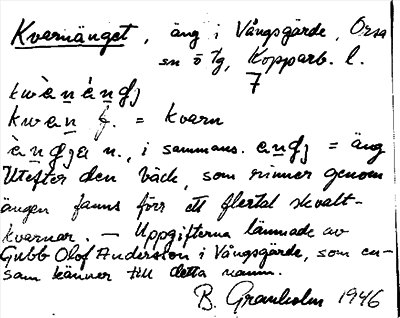 Kvarnänget, äng i Vångsgärde, Orsa
sn o tg, Kopparb. l.
7
kwàṇàṇgj
kwaṇ f. = kvarn
àṇgja n., i sammans. aṇgj = äng
Utefter den bäck, som rinner genom
ängen fanns förr ett flertal skvalt-
kvarnar. — Uppgifterna lämnade av
Gubb Olof Andersson i Vångsgärde, som en-
sam känner till detta namn.
B. Granholm 1946